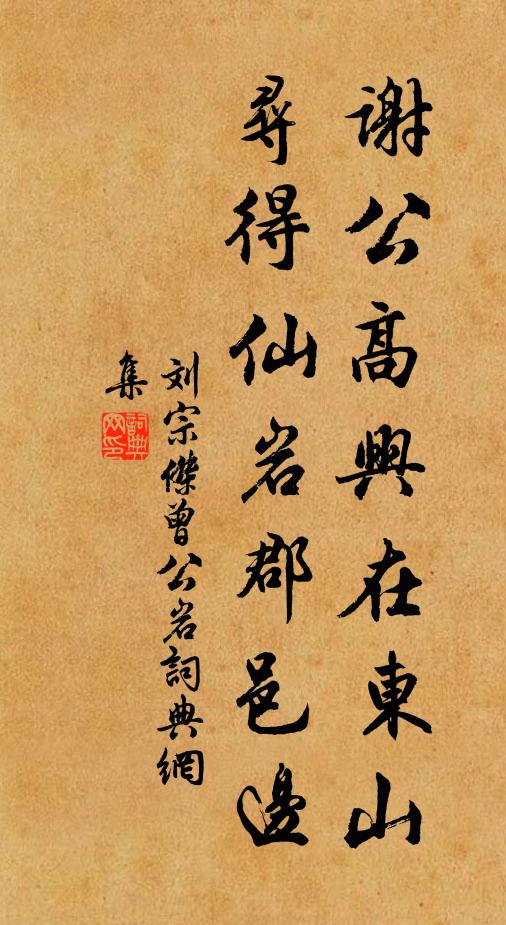 謝公高興在東山
尋得仙岩郡邑邊
刘宗傑曾公岩詞典網
集
詞典
网印